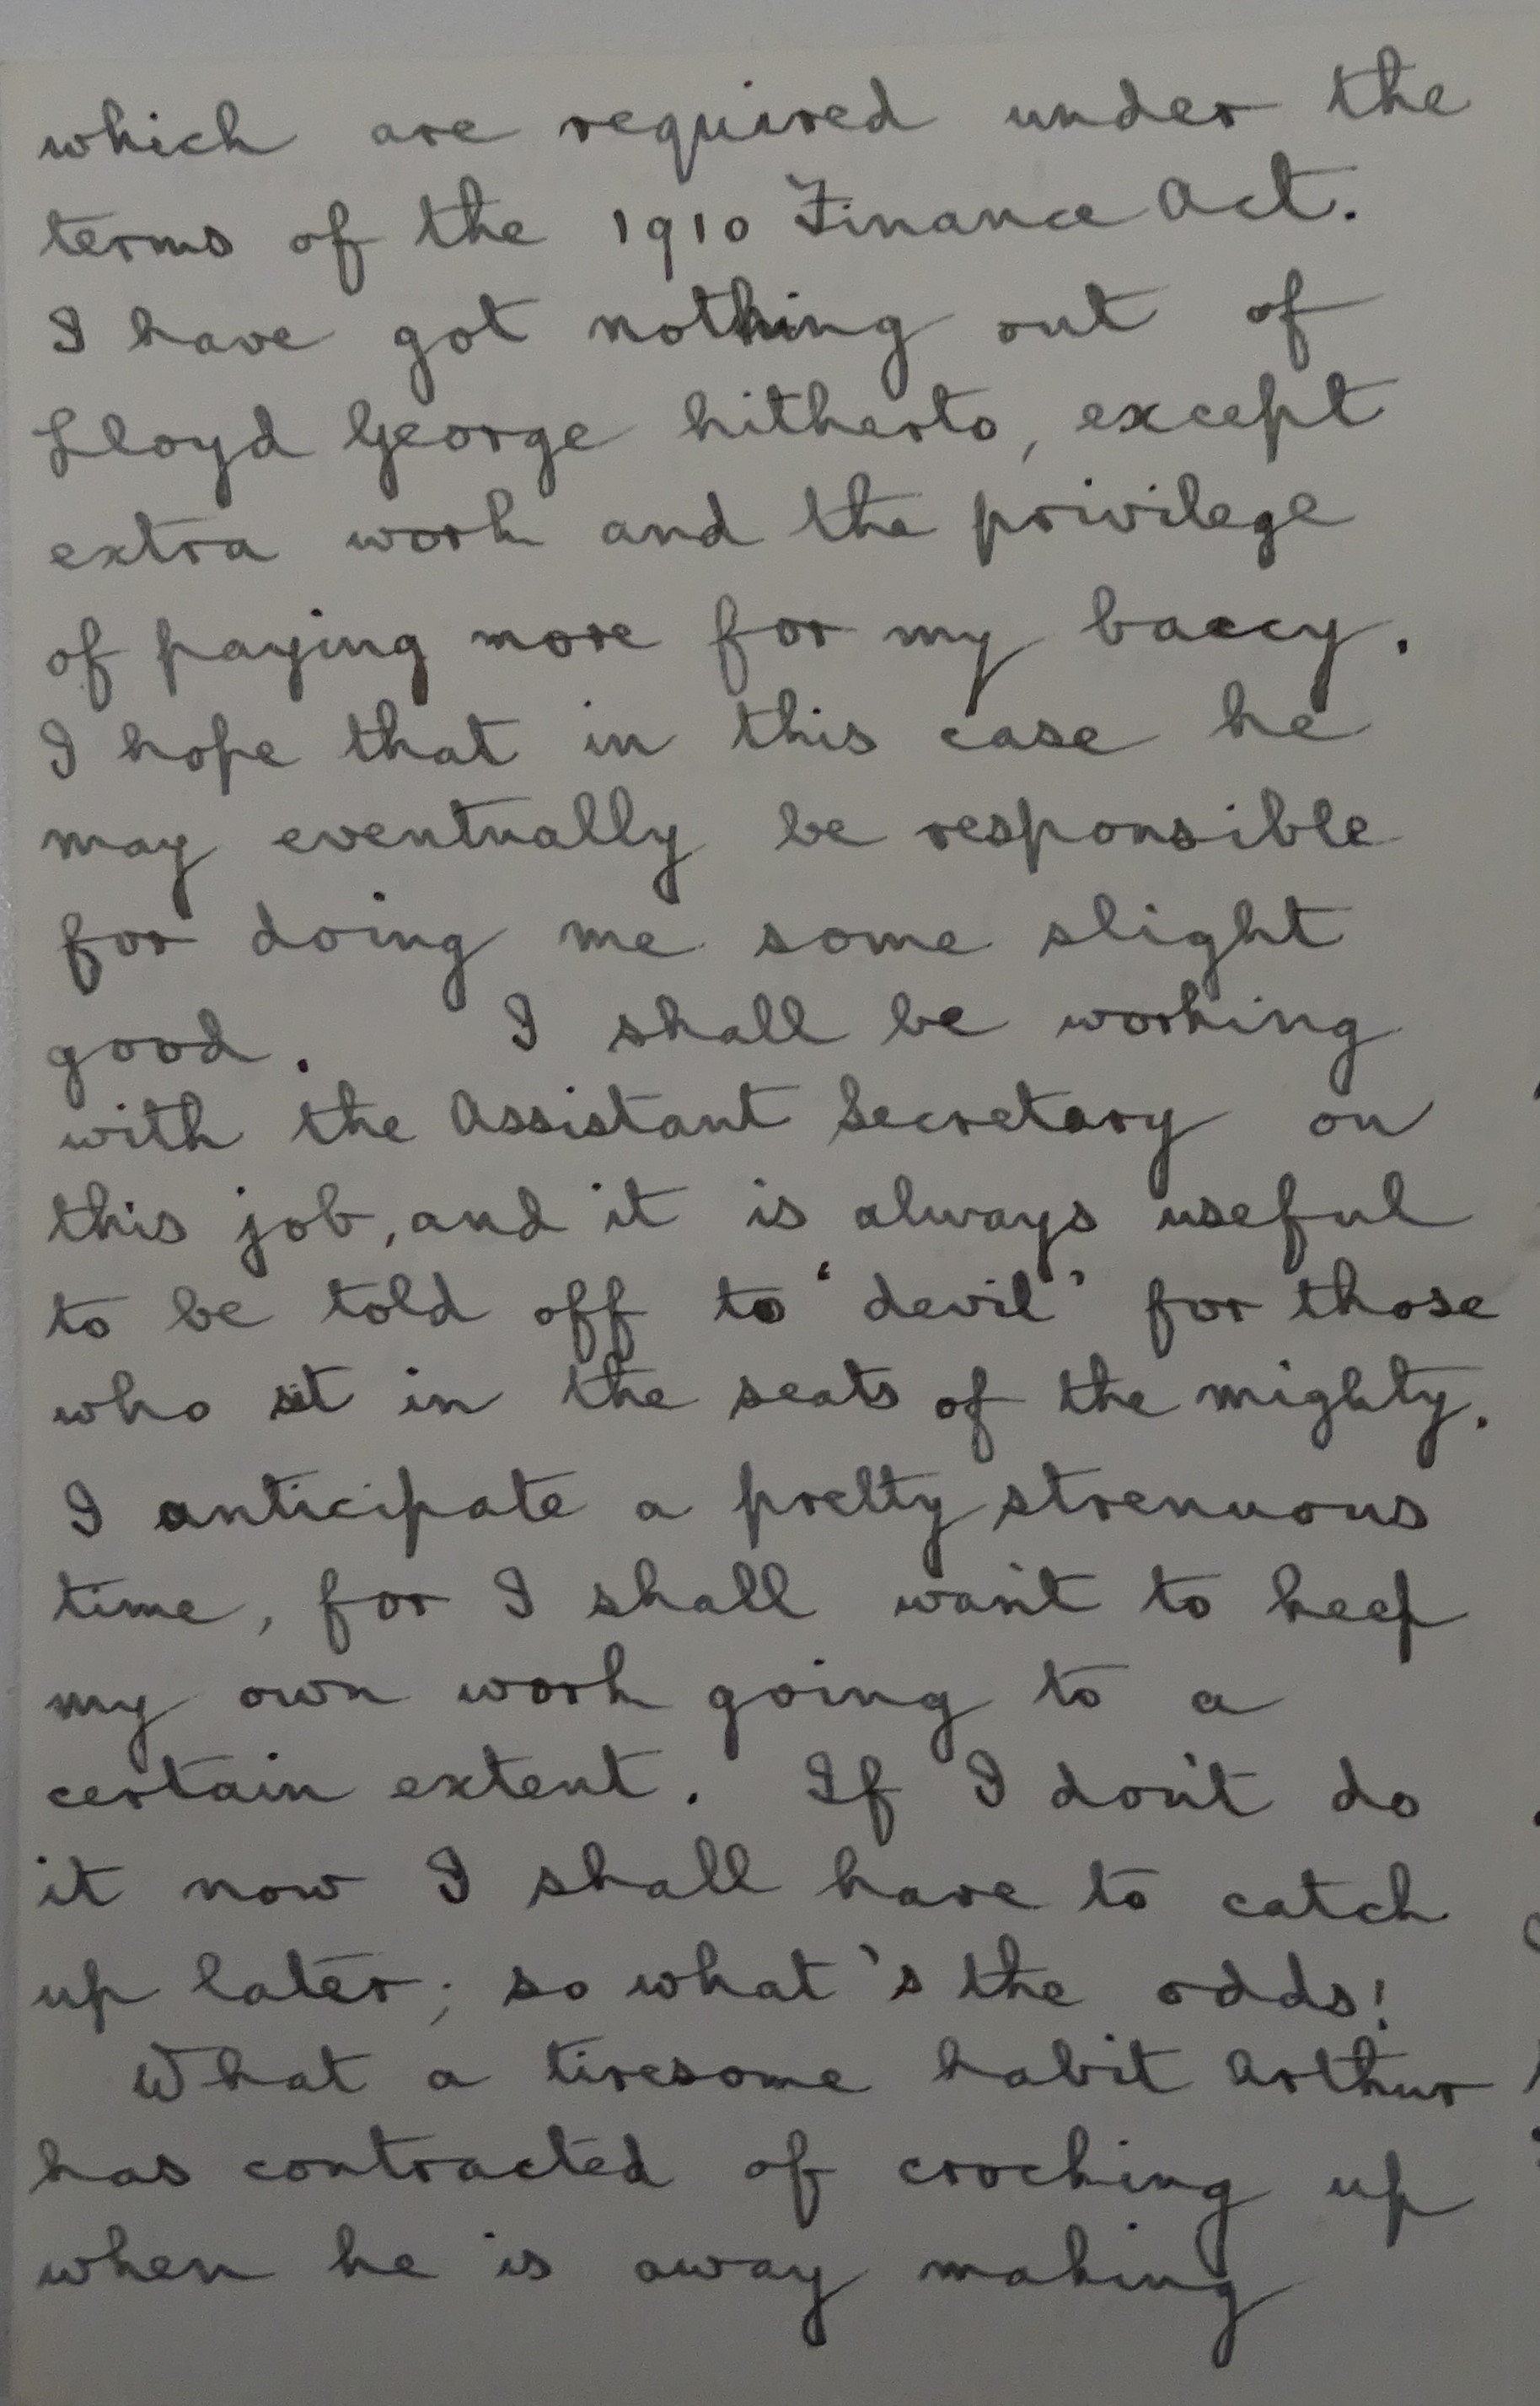 which are required under the
terms of the 1910 Finance Act.
I have got nothing out of
Lloyd George hitherto, except
extra work and the privilege
of paying more for my baccy.
I hope that in this case he
may eventually be responsible
for doing me some slight
good. I shall be working
with the Assistant Secretary on
this job, and it is always useful
to be told off to 'devil' for those
who sit in the seats of the mighty.
I anticipate a pretty strenuous
time, for I shall want to keep
my own work going to a
certain extent. If I don't do
it now I shall have to catch
up later; so what's the odds!
What a tiresome habit Arthur
has contracted of crocking up
when he is away making